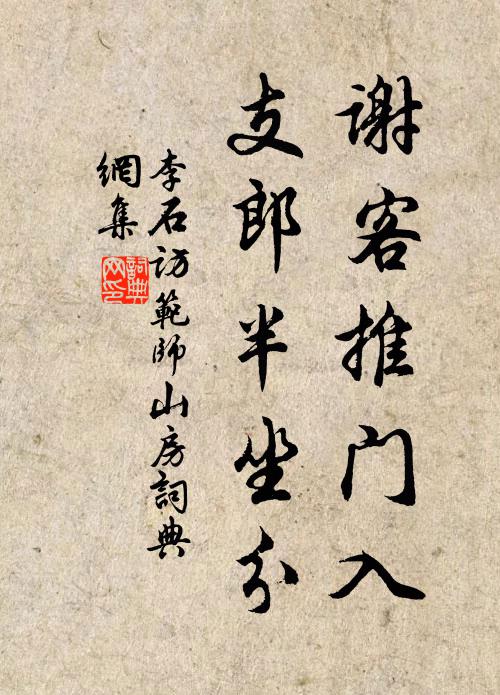 谢客推门入
支郎半坐分
李石访範師山房詞典
網集
詞典
网印